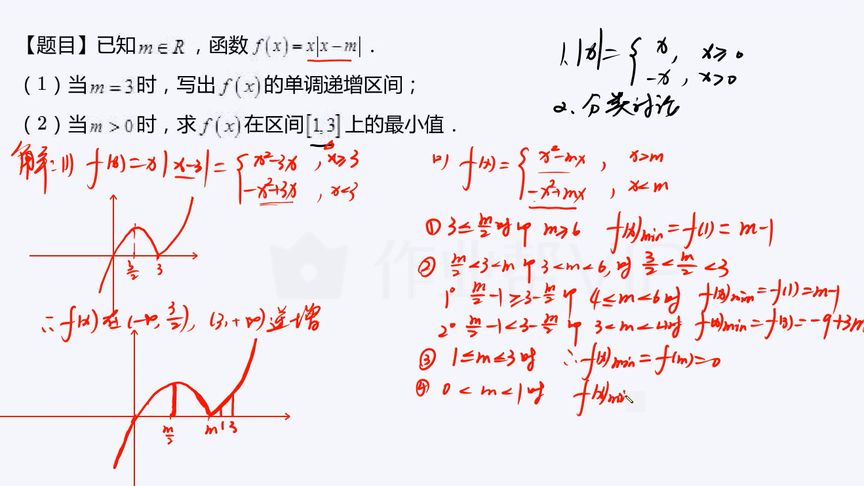 【题目】已知m∈R，函数f(x)=x|x-m|.
（1）当m=3时，写出f(x)的单调递增区间；
（2）当m>0时，求f(x)在区间[1,3]上的最小值.
1.|x|={x, x≥0
-x, x>0
2.分类讨论
解:(1) f(x)=x|x-3|={x²-3x, x≥3
-x²+3x, x<3
3/2 3
∴f(x)在(-∞,3/2),(3,+∞)递增
m/2 m 1 3
(2) f(x)={x²-mx, x>m
-x²+mx, x<m
① 3≤m/2时 即 m≥6 f(x)min=f(1)=m-1
② m/2<3<m 即 3<m<6,时 3/2<m/2<3
1° m/2-1≥3-m/2 即 4≤m<6时 f(x)min=f(1)=m-1
2° m/2-1<3-m/2 即 3<m<4时 f(x)min=f(3)=-9+3m
③ 1≤m≤3时 ∴f(x)min=f(m)=0
④ 0<m<1时 f(x)min
作业帮VIP